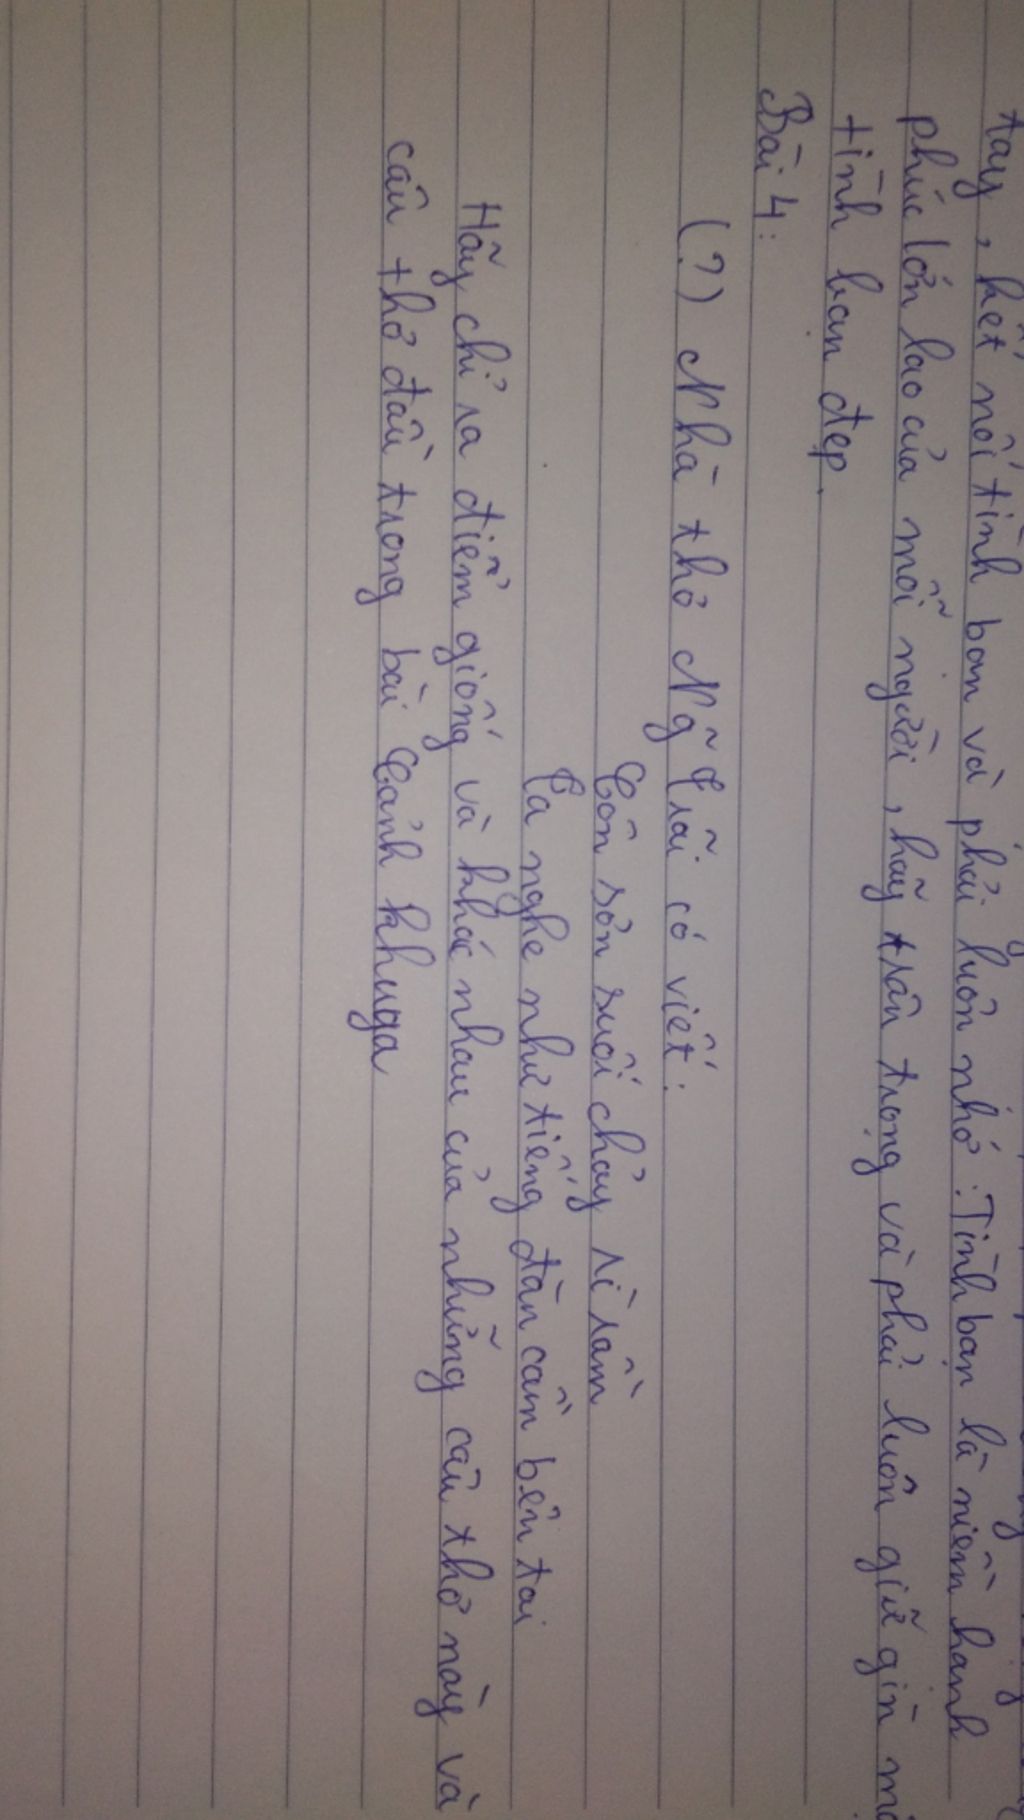 tay, kết nối tình bạn và phải luôn nhớ: Tình bạn là niềm hạnh
phúc lớn lao của mỗi người, hãy trân trọng và phải luôn giữ gìn
tình bạn đẹp.
Bài 4:
(?) Nhà thơ Ng~ Trãi có viết:
Côn sơn suối chảy rì rầm
Ta nghe như tiếng đàn cầm bên tai
Hãy chỉ ra điểm giống và khác nhau của những câu thơ này và
câu thơ đầu trong bài Cảnh khuya